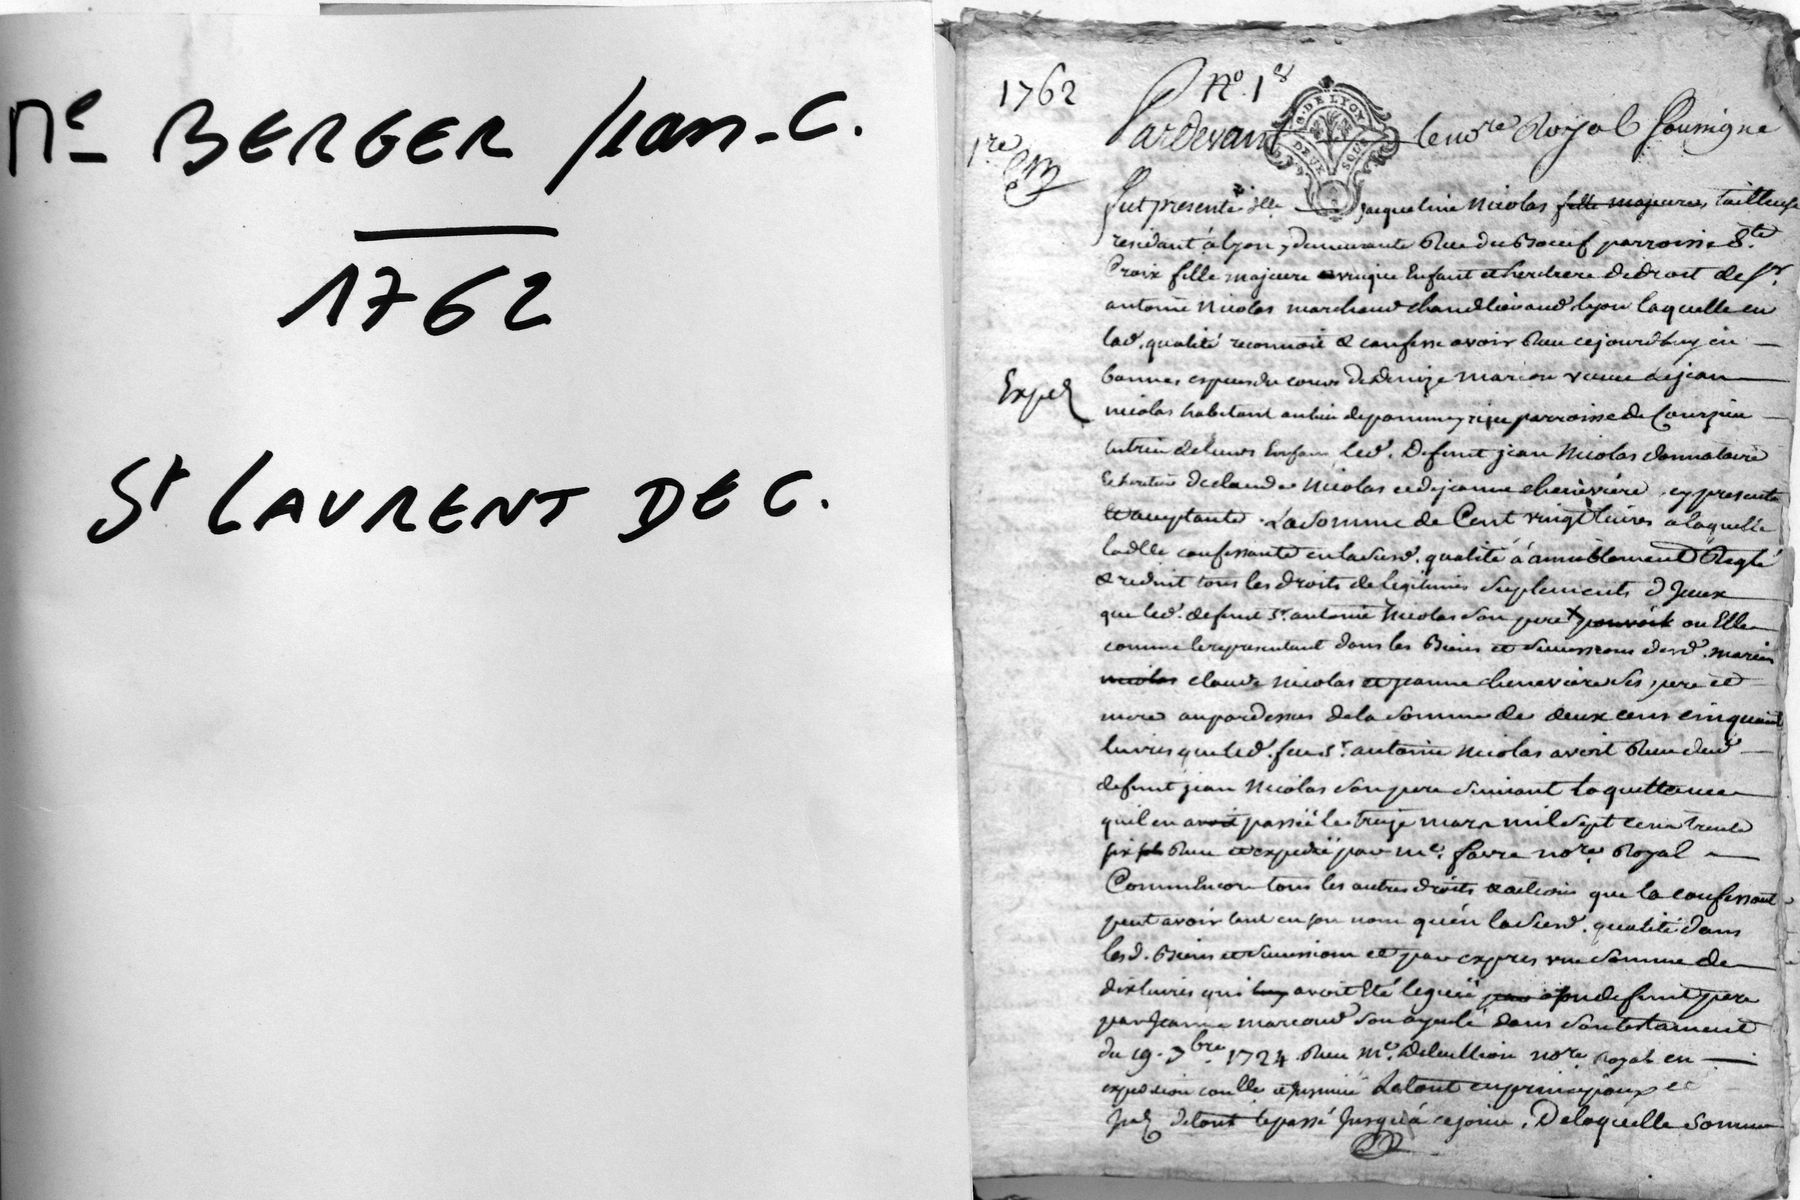 Me BERGER Jean-C.
1762
St LAURENT DE C.
1762
No. 1er
1re
G. DE LYON
DEUX SOLS
Pardevant le nore Royal Soussigné
Fut presente dlle Jacqueline Nicolas fille majeure tailleuse
residant à lyon, demeurante Rue du Boeuf parroisse Ste
Croix fille majeure unique Enfant et heritiere de droit de Sr
antoine Nicolas marchand chandelier aud. lyon laquelle en
lad. qualité reconnoit & confesse avoir Reu cejourd'huy en
bonnes especes du cours de Denize marcou veuve de jean
Exped
nicolas habitant au lieu de pommeyrieu parroisse de Courzieu
tutrice de leurs Enfans led. defunt jean Nicolas donnataire
& heritier de claude Nicolas et de jeanne chenevière, cy presente
& acceptante. La somme de Cent vingt livres a laquelle
ladlle confessante en lasusd. qualité à amiablement Reglé
& reduit tous les droits de legitimes suplements d'Iceux
que led. defunt Sr. antoine Nicolas son pere pouvoit ou Elle
comme le representant dans les Biens et successions desd. mariés
nicolas claude nicolas et jeanne cheneviere ses pere et
mere au pardessus de la somme de deux cens cinquante
livres que led. feu Sr. antoine Nicolas avoit Reu dud
defunt jean Nicolas son pere suivant la quittance
quil en avoit passée le treize mars mil sept cens trente
six Reue et expediée par me. favre nore Royal
Comm'Encore tous les autres droits & actions que la confessante
peut avoir tant en son nom qu'en lasusd. qualité dans
lesd. Biens et successions et par expres une somme de
dix livres qui luy avoit Eté leguée par a son defunt pere
par Jeanne marcoud son ayeule dans son testament
du 19. 7bre 1724 Reu Me. nore royal en
Le tout en principaux et
de tout le passé jusqu'à ce jour. De laquelle somme